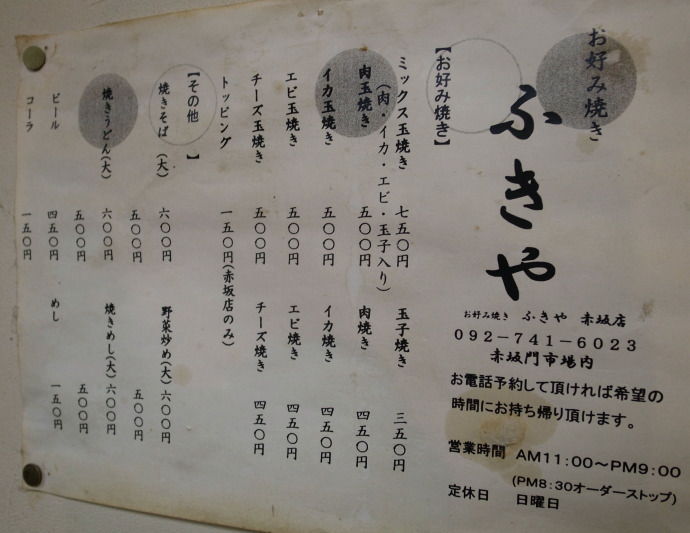 お好み焼き
ふきや
お好み焼き ふきや 赤坂店
092-741-6023
赤坂門市場内
お電話予約して頂ければ希望の
時間にお持ち帰り頂けます。
営業時間 AM11:00〜PM9:00
(PM8:30オーダーストップ)
定休日 日曜日
【お好み焼き】
ミックス玉焼き 七五〇円 玉子焼き 三五〇円
(肉・イカ・エビ・玉子入り)
肉玉焼き 五〇〇円 肉焼き 四五〇円
イカ玉焼き 五〇〇円 イカ焼き 四五〇円
エビ玉焼き 五〇〇円 エビ焼き 四五〇円
チーズ玉焼き 五〇〇円 チーズ焼き 四五〇円
トッピング 一五〇円(赤坂店のみ)
【その他】
焼きそば(大) 六〇〇円 野菜炒め(大) 六〇〇円
五〇〇円 五〇〇円
焼きうどん(大) 六〇〇円 焼きめし(大) 六〇〇円
五〇〇円 五〇〇円
ビール 四五〇円 めし 一五〇円
コーラ 一五〇円